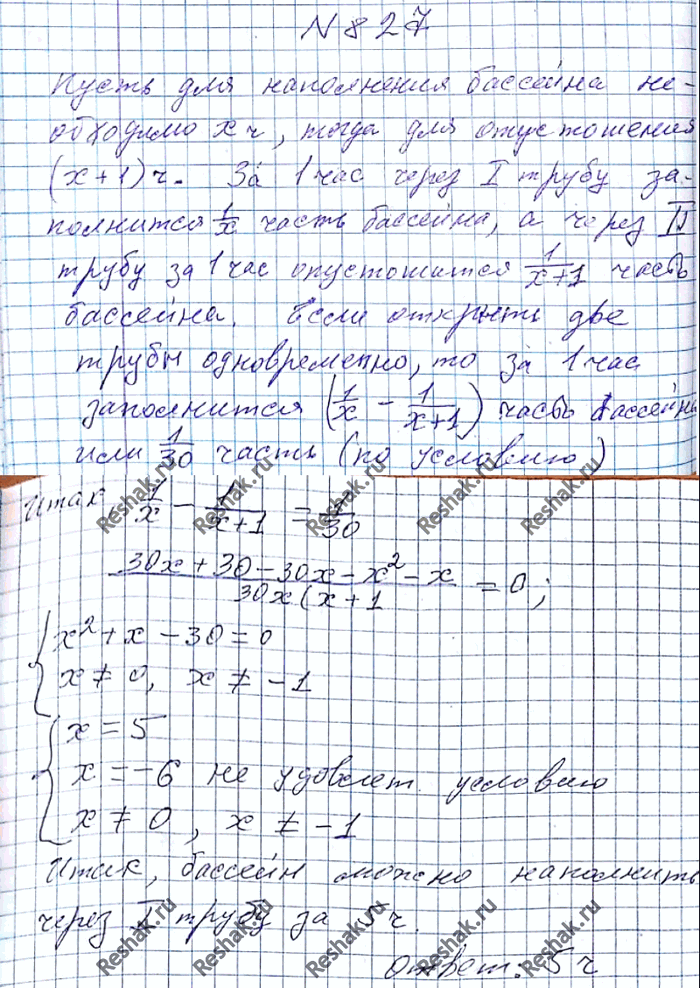 N 827
Пусть для наполнения бассейна не-
обходимо x ч, тогда для опустошения
(x+1) ч. За 1 час через I трубу за-
полнится 1/x часть бассейна, а через II
трубу за 1 час опустошится 1/(x+1) часть
бассейна. Если открыть две
трубы одновременно, то за 1 час
заполнится (1/x - 1/(x+1)) часть бассейна
или 1/30 часть (по условию)
Итак, 1/x - 1/(x+1) = 1/30
(30x + 30 - 30x - x² - x)/(30x(x+1) = 0;
{ x² + x - 30 = 0
x ≠ 0, x ≠ -1
{ x = 5
x = -6 не удовлет. условию
x ≠ 0, x ≠ -1
Итак, бассейн можно наполнить
через I трубу за 5 ч.
Ответ: 5 ч
Reshak.ru Reshak.ru Reshak.ru Reshak.ru Reshak.ru
Reshak.ru Reshak.ru Reshak.ru Reshak.ru Reshak.ru